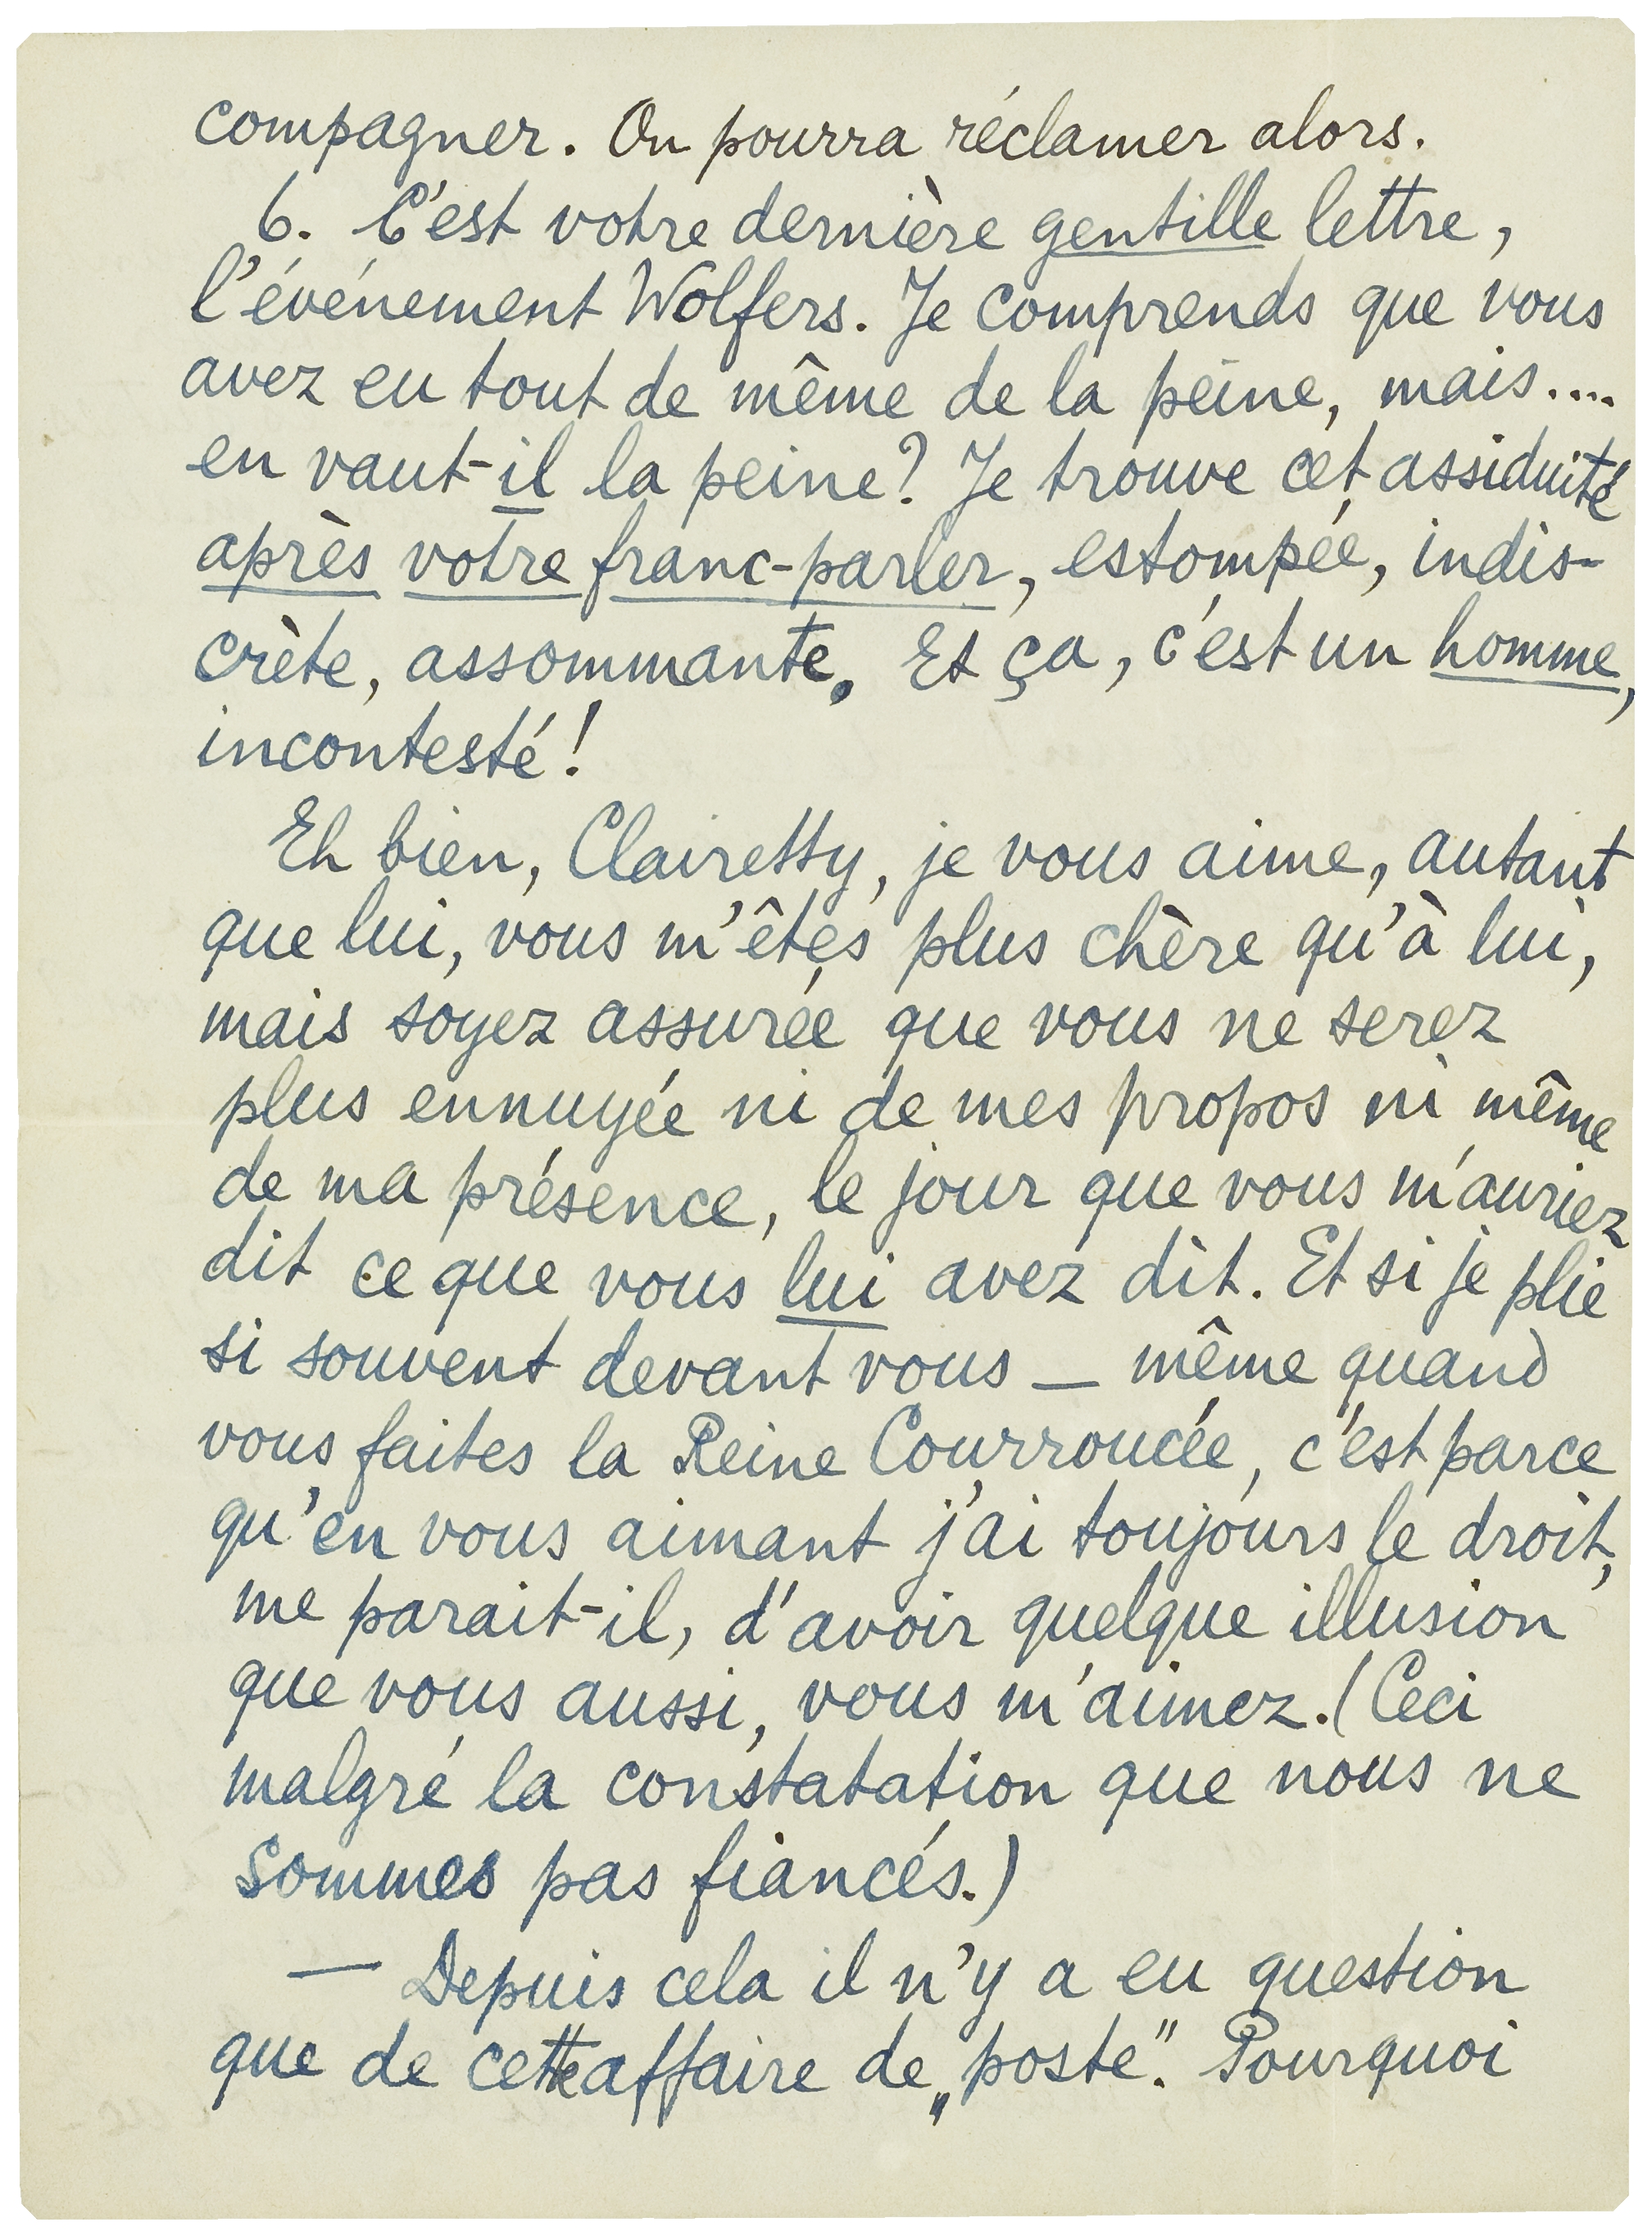 compagner. On pourra réclamer alors.
6. C'est votre dernière gentille lettre,
l'événement Wolfers. Je comprends que vous
avez eu tout de même de la peine, mais....
en vaut-il la peine? Je trouve cet assiduité
après votre franc-parler, estompée, indis-
crète, assommante. Et ça, c'est un homme,
incontesté!
Eh bien, Clairetty, je vous aime, autant
que lui, vous m'êtes plus chère qu'à lui,
mais soyez assurée que vous ne serez
plus ennuyée ni de mes propos ni même
de ma présence, le jour que vous m'auriez
dit ce que vous lui avez dit. Et si je plie
si souvent devant vous — même quand
vous faites la Reine Courroucée, c'est parce
qu'en vous aimant j'ai toujours le droit,
me parait-il, d'avoir quelque illusion
que vous aussi, vous m'aimez. (Ceci
malgré la constatation que nous ne
sommes pas fiancés.)
— Depuis cela il n'y a eu question
que de cette affaire de „poste". Pourquoi